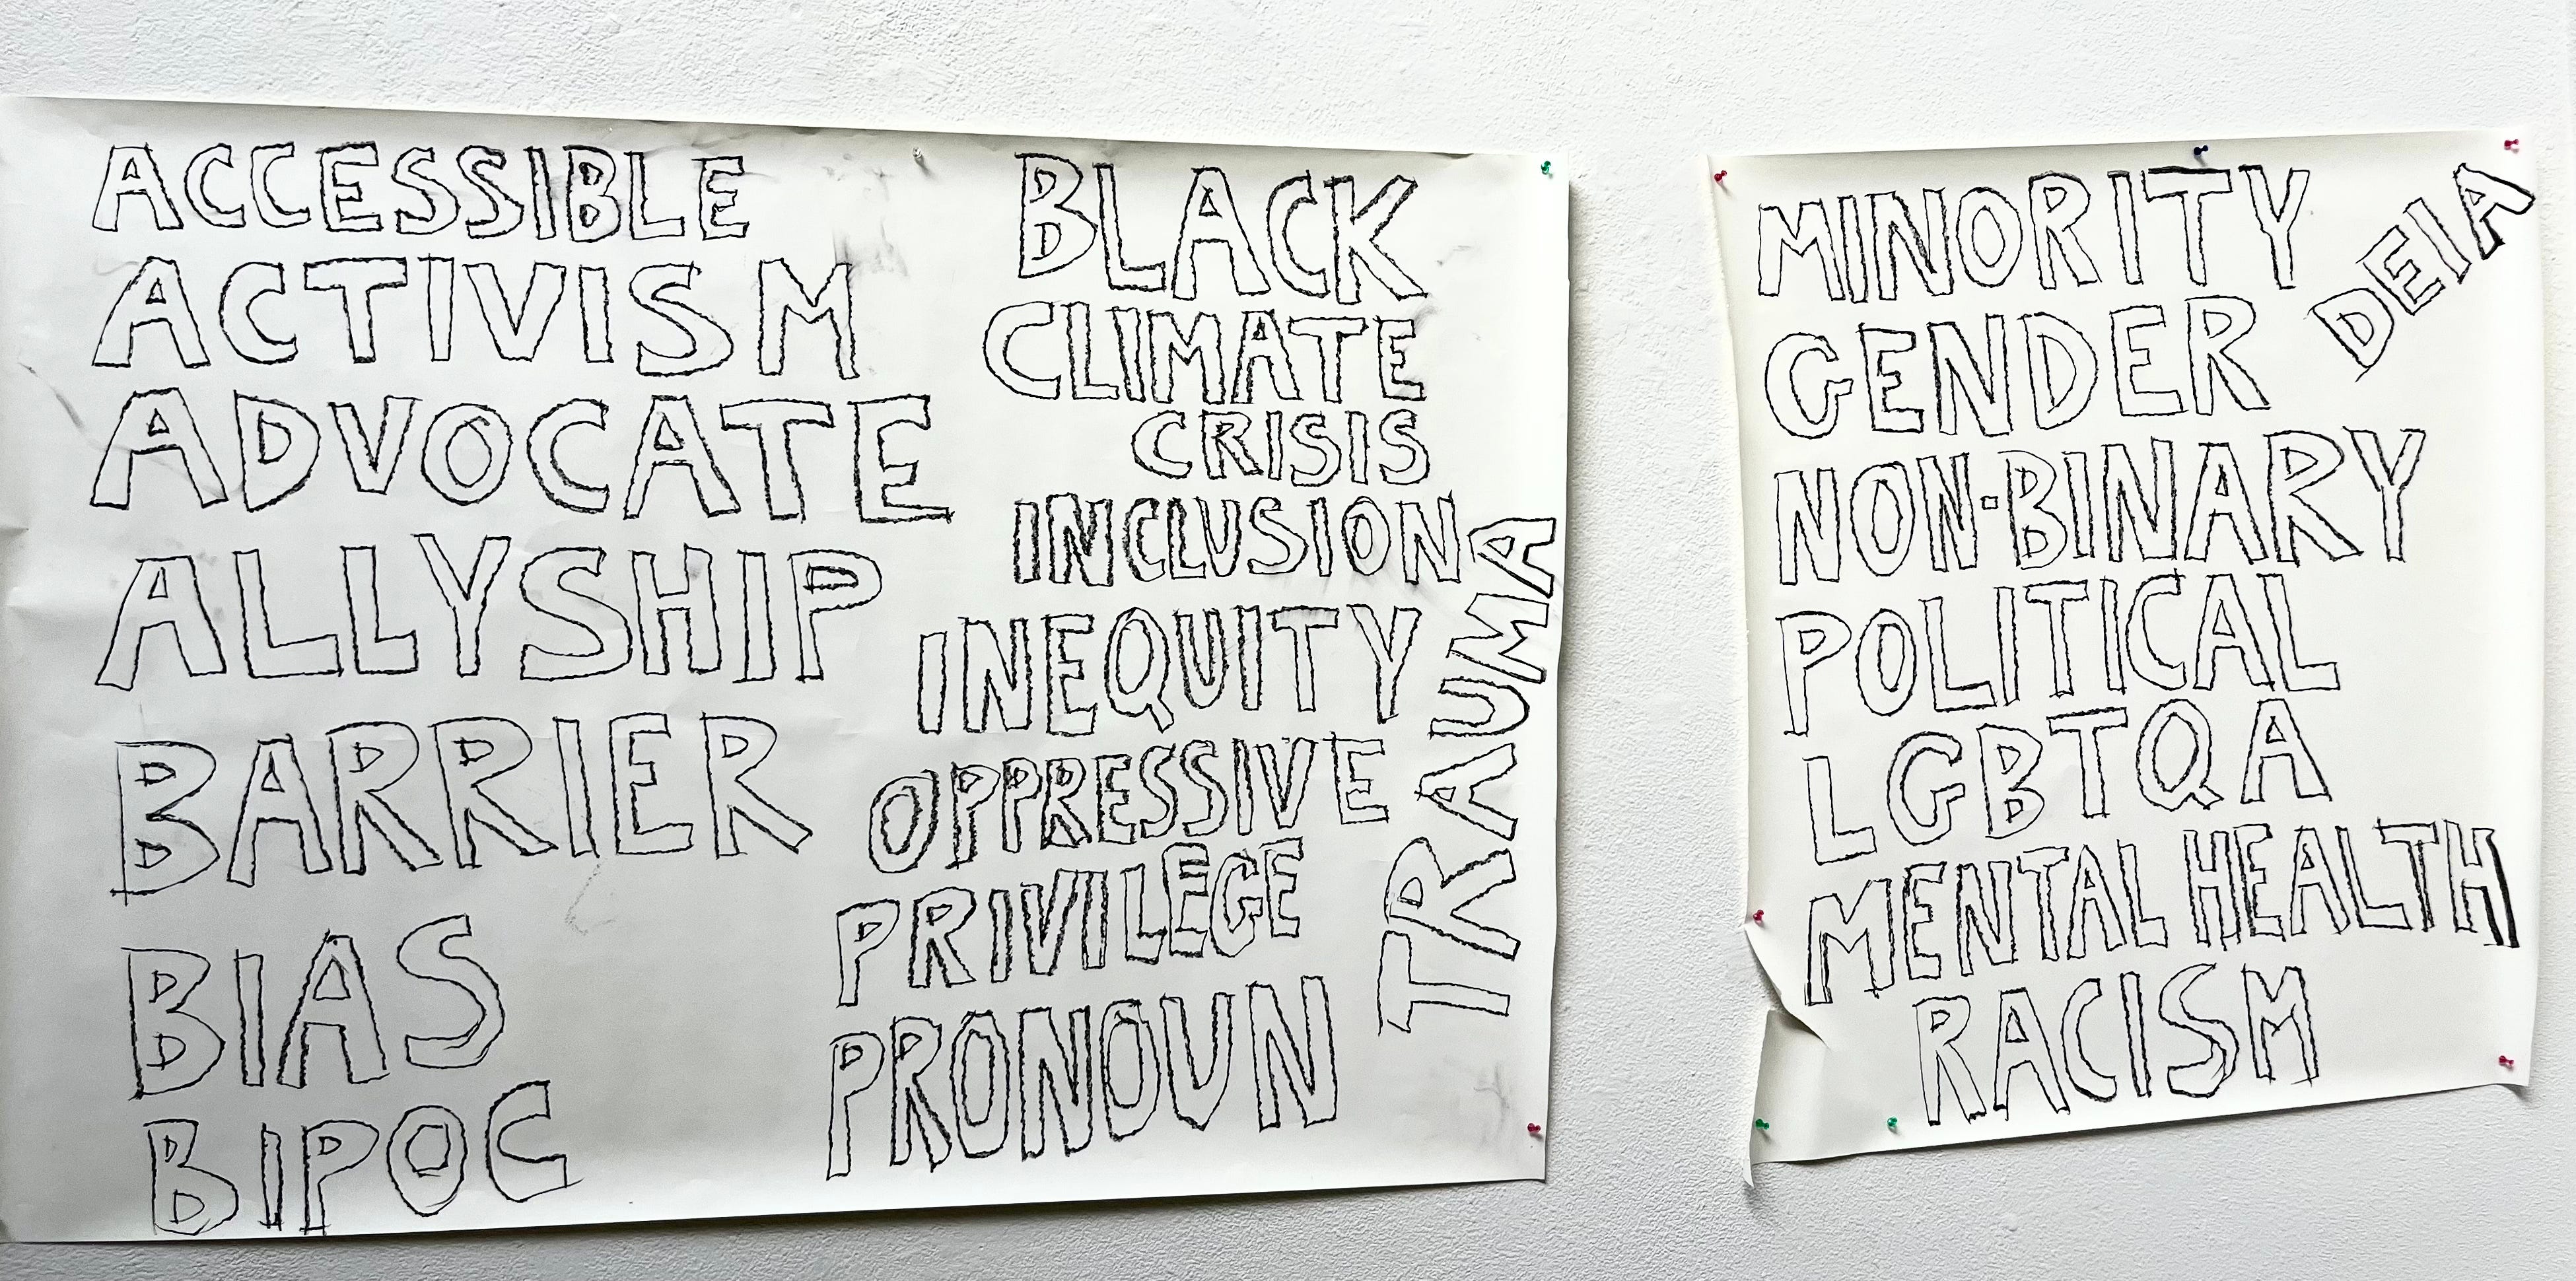 ACCESSIBLE
ACTIVISM
ADVOCATE
ALLYSHIP
BARRIER
BIAS
BIPOC
BLACK
CLIMATE
CRISIS
INCLUSION
INEQUITY
OPPRESSIVE
PRIVILEGE
PRONOUN
TRAUMA
MINORITY
DEIA
GENDER
NON-BINARY
POLITICAL
LGBTQA
MENTAL HEALTH
RACISM